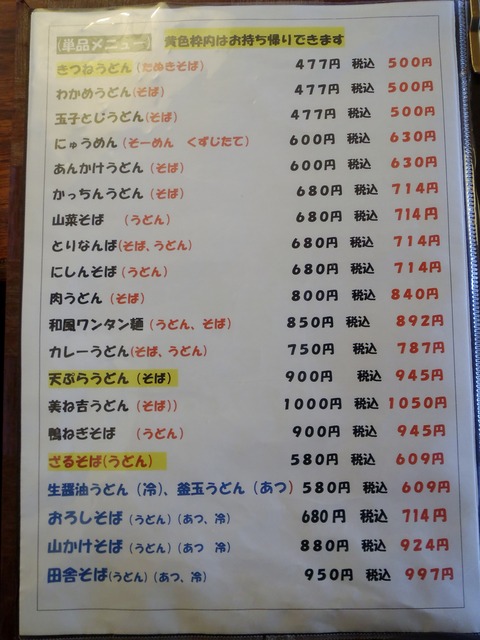 【単品メニュー】 黄色枠内はお持ち帰りできます
きつねうどん(たぬきそば) 477円 税込 500円
わかめうどん(そば) 477円 税込 500円
玉子とじうどん(そば) 477円 税込 500円
にゅうめん(そーめん くずじたて) 600円 税込 630円
あんかけうどん(そば) 600円 税込 630円
かっちんうどん(そば) 680円 税込 714円
山菜そば (うどん) 680円 税込 714円
とりなんば(そば、うどん) 680円 税込 714円
にしんそば(うどん) 680円 税込 714円
肉うどん(そば) 800円 税込 840円
和風ワンタン麺(うどん、そば) 850円 税込 892円
カレーうどん(そば、うどん) 750円 税込 787円
天ぷらうどん(そば) 900円 税込 945円
美ね吉うどん(そば)) 1000円 税込 1050円
鴨ねぎそば (うどん) 900円 税込 945円
ざるそば(うどん) 580円 税込 609円
生醤油うどん(冷)、釜玉うどん(あつ) 580円 税込 609円
おろしそば(うどん)(あつ、冷) 680円 税込 714円
山かけそば(うどん)(あつ 冷) 880円 税込 924円
田舎そば(うどん)(あつ、冷) 950円 税込 997円